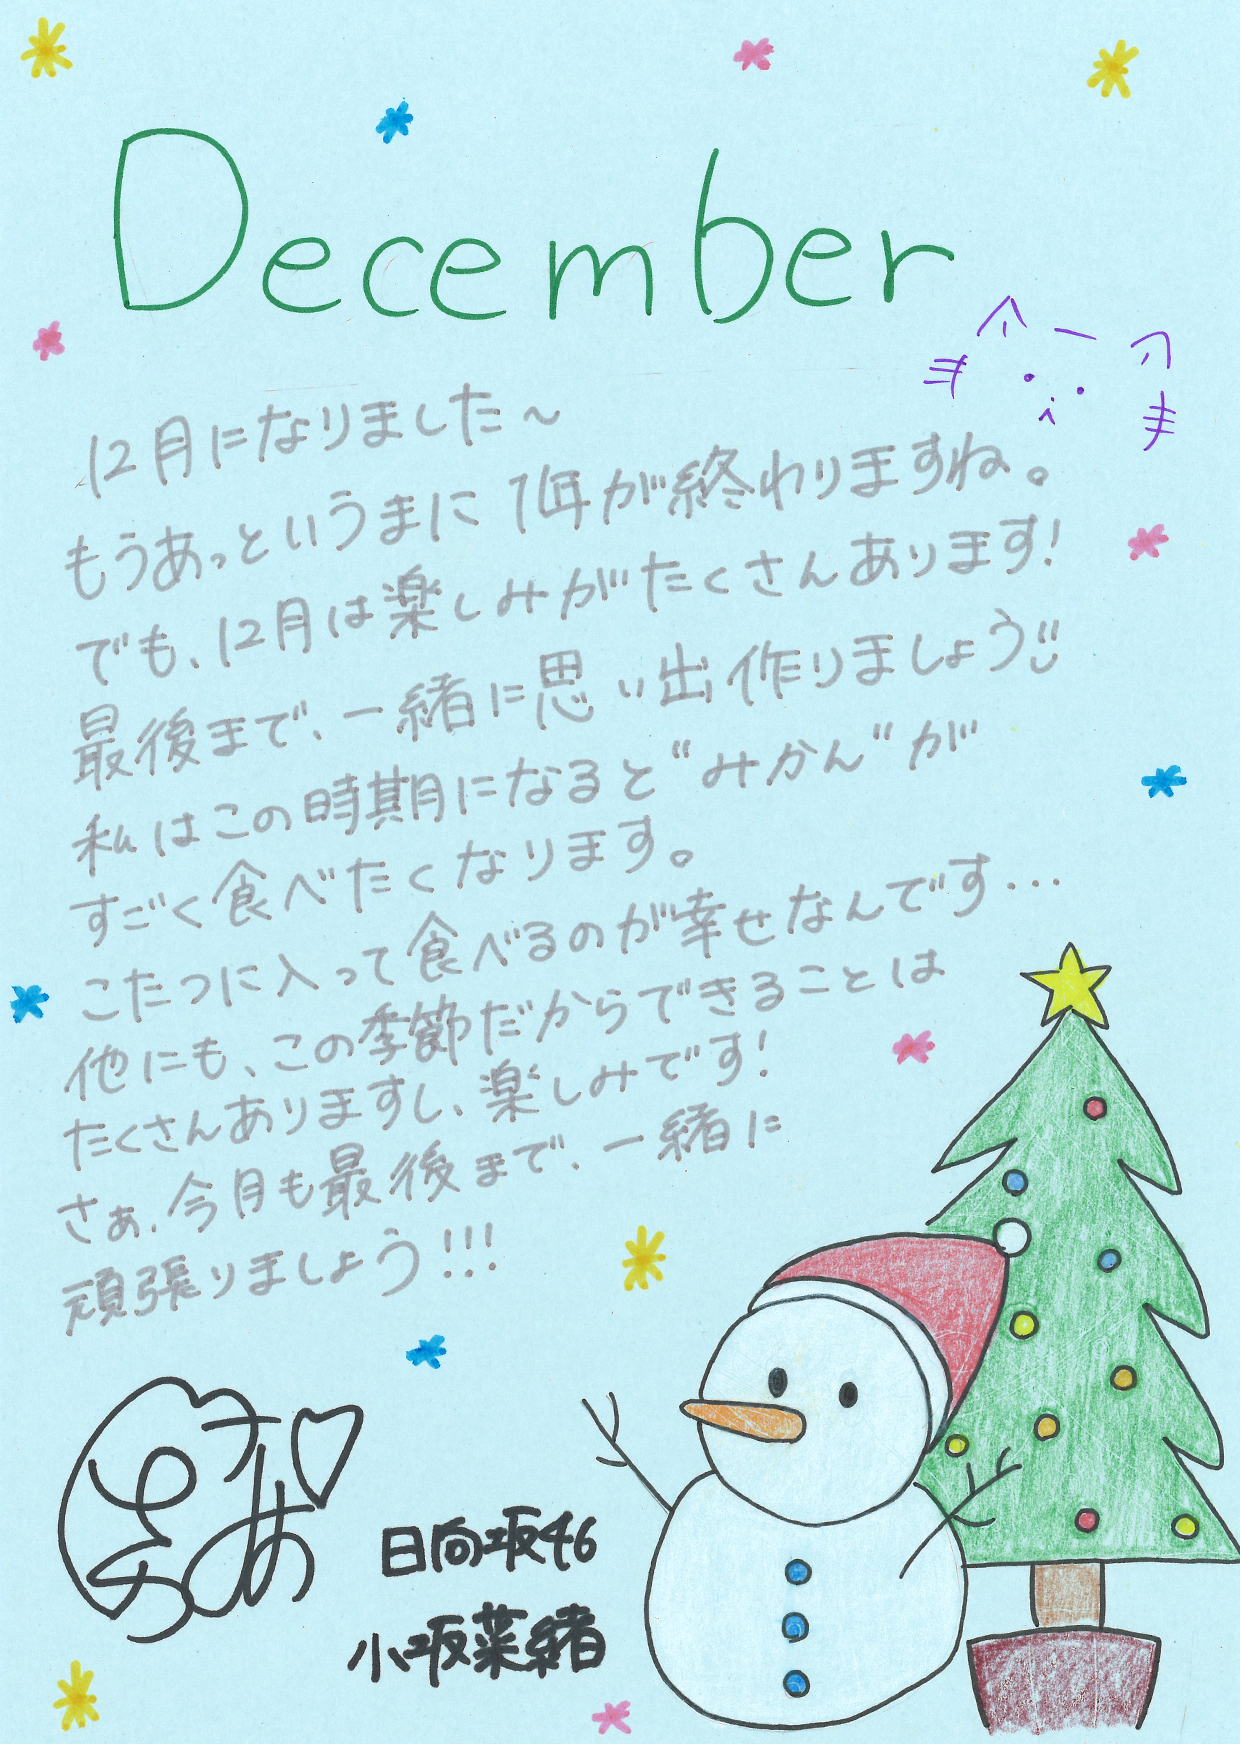 December
12月になりました～
もうあっというまに1年が終わりますね。
でも、12月は楽しみがたくさんあります!
最後まで、一緒に思い出作りましょう
私はこの時期になると"みかん"が
すごく食べたくなります。
こたつに入って食べるのが幸せなんです…
他にも、この季節だからできることは
たくさんありますし、楽しみです!
さぁ、今月も最後まで、一緒に
頑張りましょう!!!
日向坂46
小坂菜緒